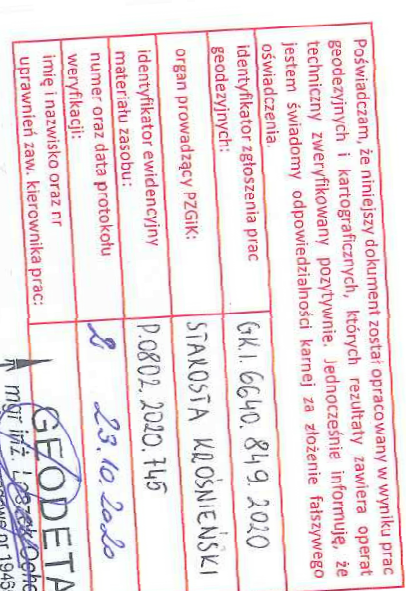 Poświadczam, że niniejszy dokument został opracowany w wyniku prac
geodezyjnych i kartograficznych, których rezultaty zawiera operat
techniczny zweryfikowany pozytywnie. Jednocześnie informuję, że
jestem świadomy odpowiedzialności karnej za złożenie fałszywego
oświadczenia.
identyfikator zgłoszenia prac
geodezyjnych:
GK.I. 6640. 849. 2020
organ prowadzący PZGiK:
STAROSTA KROŚNIEŃSKI
identyfikator ewidencyjny
materiału zasobu:
P.0802. 2020. 745
numer oraz data protokołu
weryfikacji:
23.10.2020
imię i nazwisko oraz nr
uprawnień zaw. kierownika prac:
GEODETA
mgr inż. Leszek Oche
nr 1943